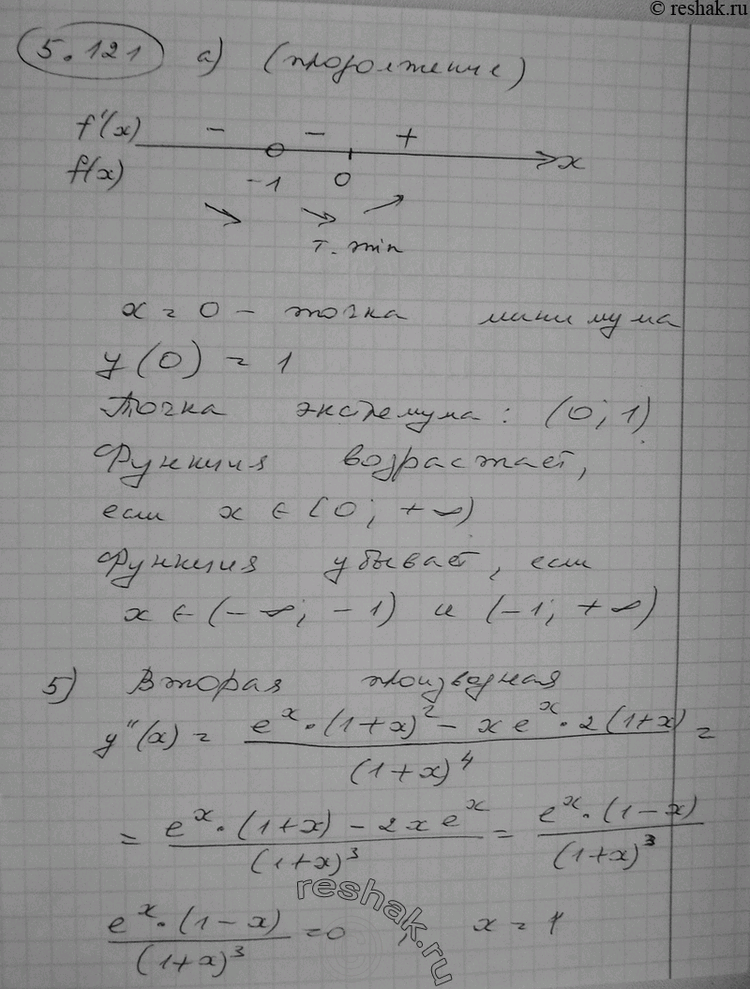 © reshak.ru
5.121 а) (продолжение)
f'(x) − − +
f(x) -1 0 x
т. min
x = 0 – точка минимума
y(0) = 1
Точка экстремума: (0; 1)
Функция возрастает,
если x ∈ (0; +∞)
Функция убывает, если
x ∈ (-∞; -1) и (-1; +∞)
5) Вторая производная
y''(x) = (e^x·(1+x)^2 - xe^x·2(1+x))/(1+x)^4 =
= (e^x·(1+x) - 2xe^x)/(1+x)^3 = (e^x·(1-x))/(1+x)^3
(e^x·(1-x))/(1+x)^3 = 0, x = 1
reshak.ru